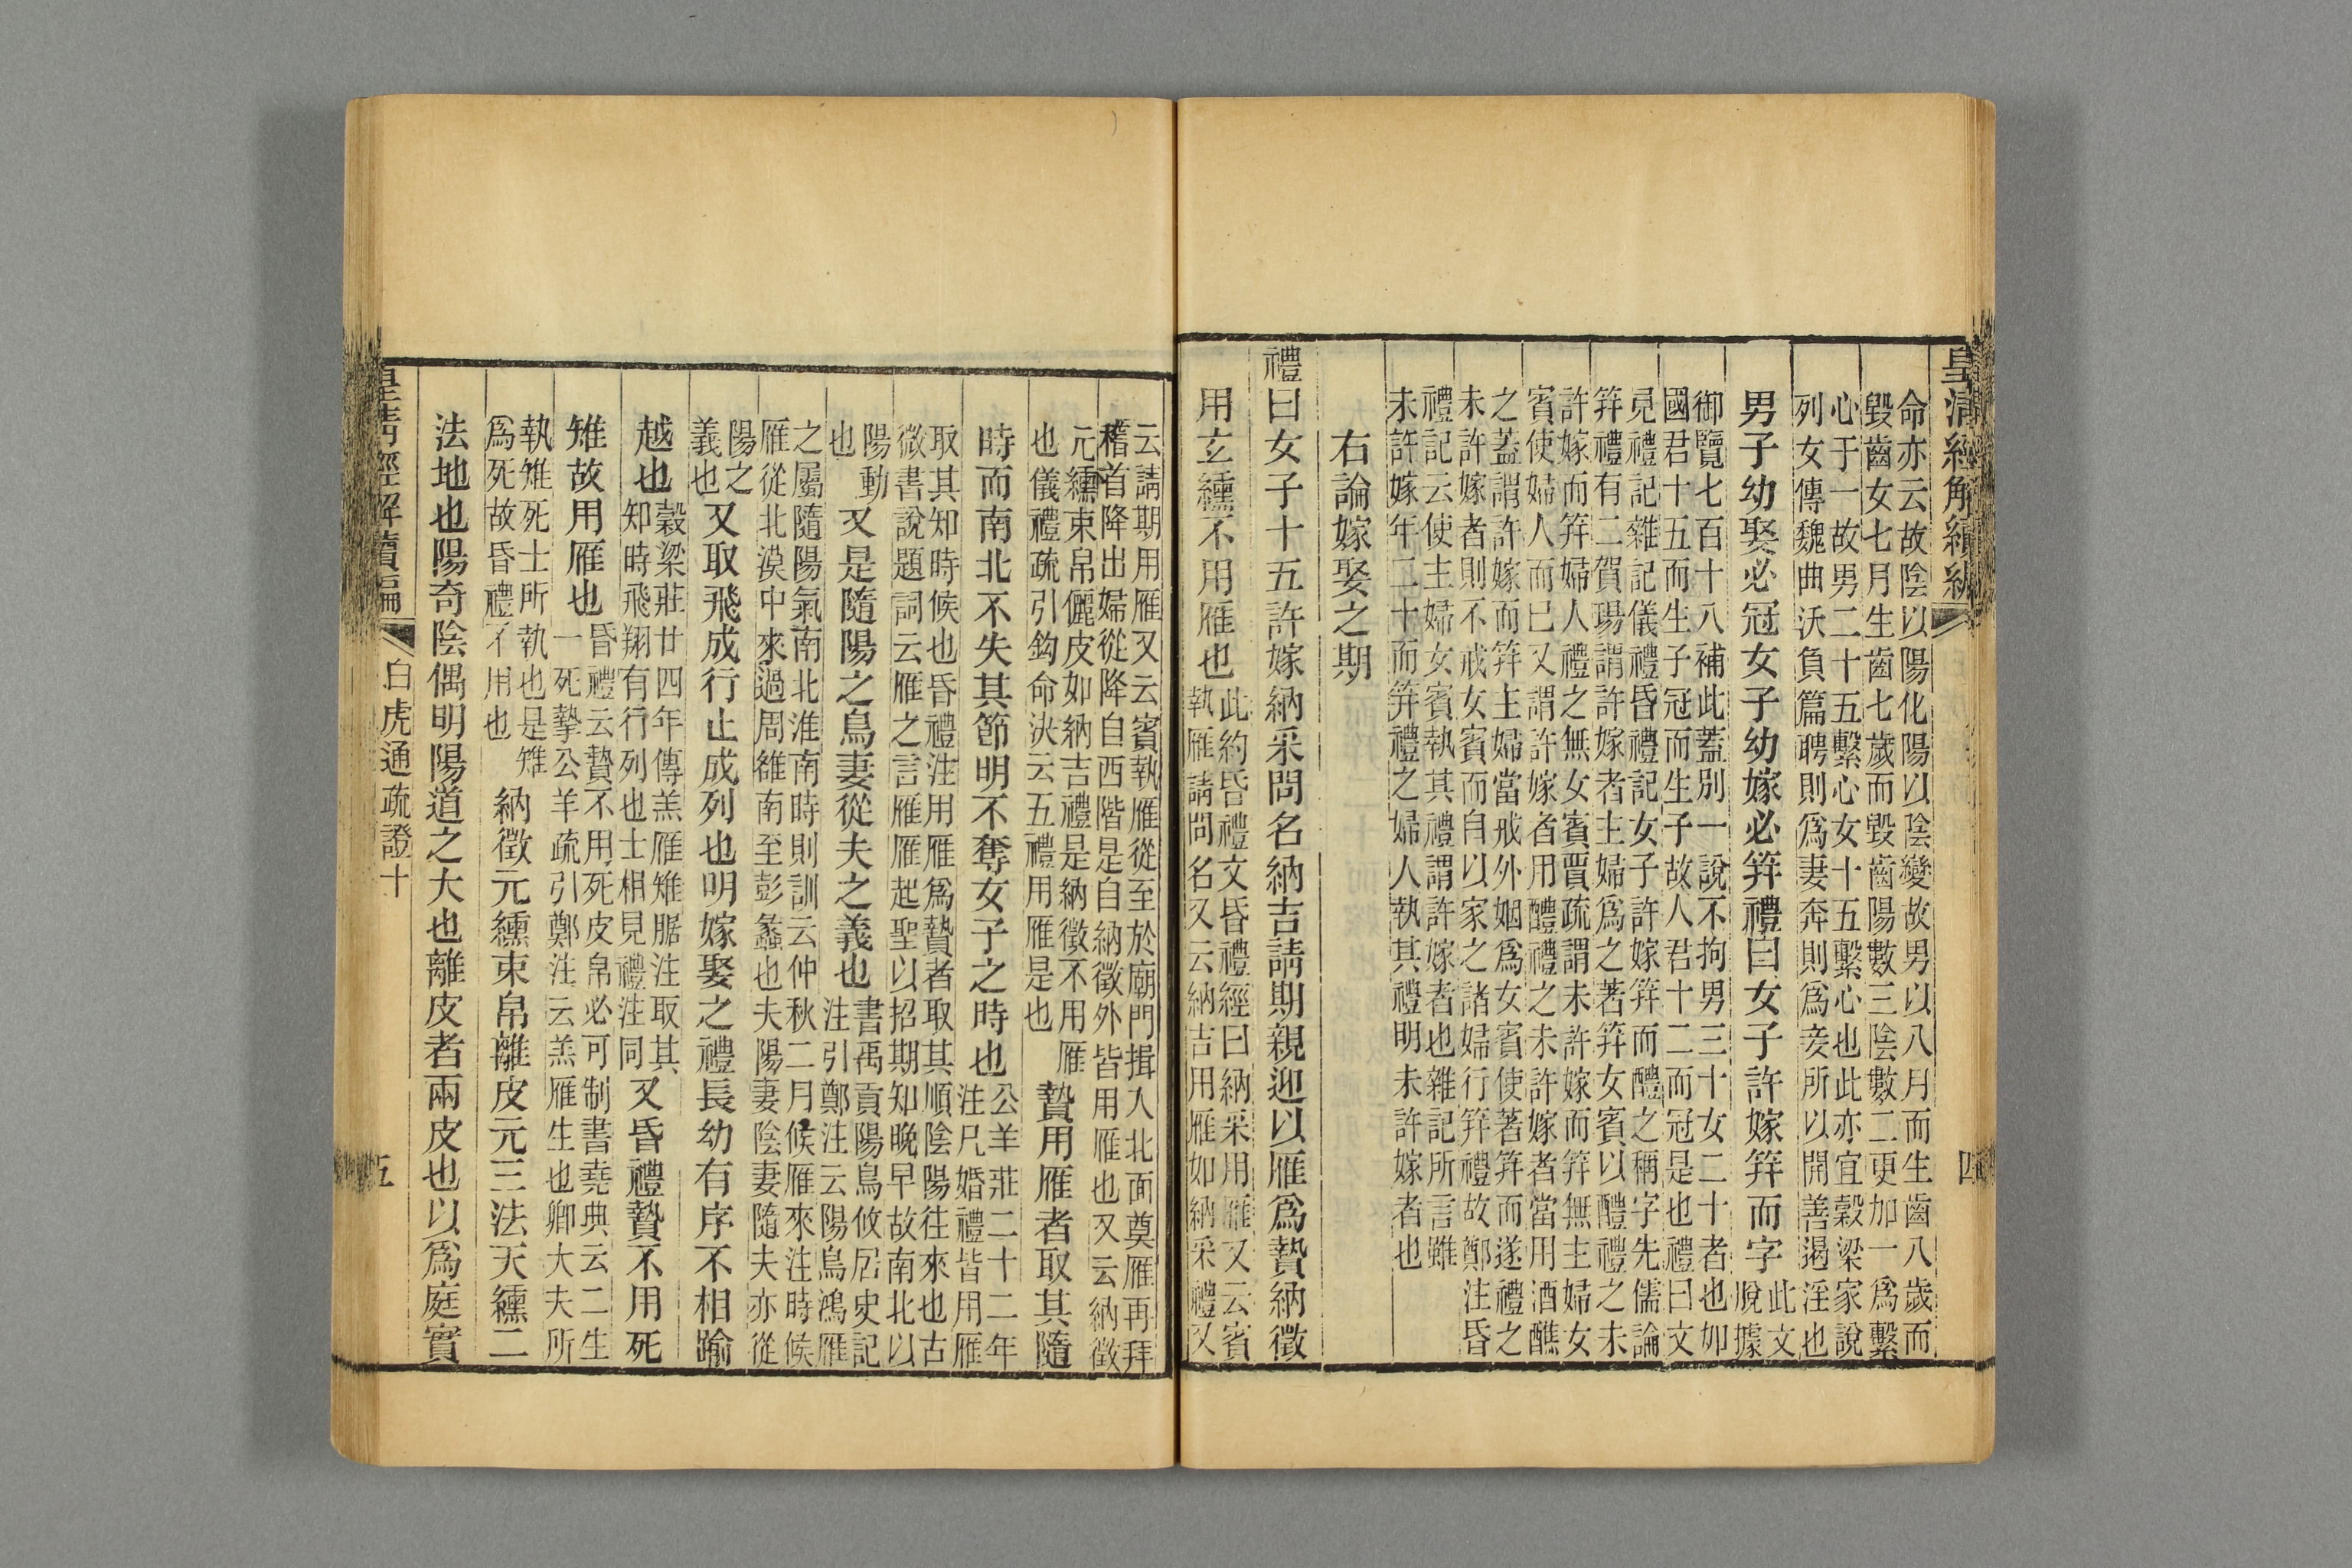 皇清經解續編
四
命亦云故陰以陽化陽以陰變故男以八月而生齒八歲而
毀齒女七月生齒七歲而毀齒陽數三陰數二更加一爲繫
心于一故男二十五繫心女十五繫心也此亦宜穀梁家說
列女傳魏曲沃負篇聘則爲妻奔則爲妾所以開善遏淫也
男子幼娶必冠女子幼嫁必笄禮曰女子許嫁笄而字
此文
脫據
御覽七百十八補此蓋別一說不拘男三十女二十者也如
國君十五而生子冠而生子故人君十二而冠是也禮曰文
見禮記雜記儀禮昏禮記女子許嫁笄而醴之稱字先儒論
笄禮有二賀瑒謂許嫁者主婦爲之著笄女賓以醴禮之未
許嫁而笄婦人禮之無女賓賈疏謂未許嫁而笄無主婦女
賓使婦人而已又謂許嫁者用醴禮之未許嫁者當用酒醮
之蓋謂許嫁而笄主婦當戒外姻爲女賓使著笄而遂禮之
未許嫁者則不戒女賓而自以家之諸婦行笄禮故鄭注昏
禮記云使主婦女賓執其禮謂許嫁者也雜記所言雖
未許嫁年二十而笄禮之婦人執其禮明未許嫁者也
右論嫁娶之期
禮曰女子十五許嫁納采問名納吉請期親迎以雁爲贄納徵
用玄纁不用雁也
此約昏禮文昏禮經曰納采用雁又云賓
執雁請問名又云納吉用雁如納采禮又
云請期用雁又云賓執雁從至於廟門揖入北面奠雁再拜
稽首降出婦從降自西階是自納徵外皆用雁也又云納徵
元纁束帛儷皮如納吉禮是納徵不用雁
也儀禮疏引鈎命決云五禮用雁是也
贄用雁者取其隨
時而南北不失其節明不奪女子之時也
公羊莊二十二年
注凡婚禮皆用雁
取其知時候也昏禮注用雁爲贄者取其順陰陽往來也古
微書說題詞云雁之言雁雁起聖以招期知晚早故南北以
陽動
也
又是隨陽之鳥妻從夫之義也
書禹貢陽鳥攸居史記
注引鄭注云陽鳥鴻雁
之屬隨陽氣南北淮南時則訓云仲秋二月候雁來注時候
雁從北漠中來過周雒南至彭蠡也夫陽妻陰妻隨夫亦從
陽之
義也
又取飛成行止成列也明嫁娶之禮長幼有序不相踰
越也
穀梁莊廿四年傳羔雁雉腒注取其
知時飛翔有行列也士相見禮注同
又昏禮贄不用死
雉故用雁也
昏禮云贄不用死皮帛必可制書堯典云二生
一死摯公羊疏引鄭注云羔雁生也卿大夫所
執雉死士所執也是雉
爲死故昏禮不用也
納徵元纁束帛離皮元三法天纁二
法地也陽奇陰偶明陽道之大也離皮者兩皮也以爲庭實
皇淸經解續編
白虎通疏證十
五